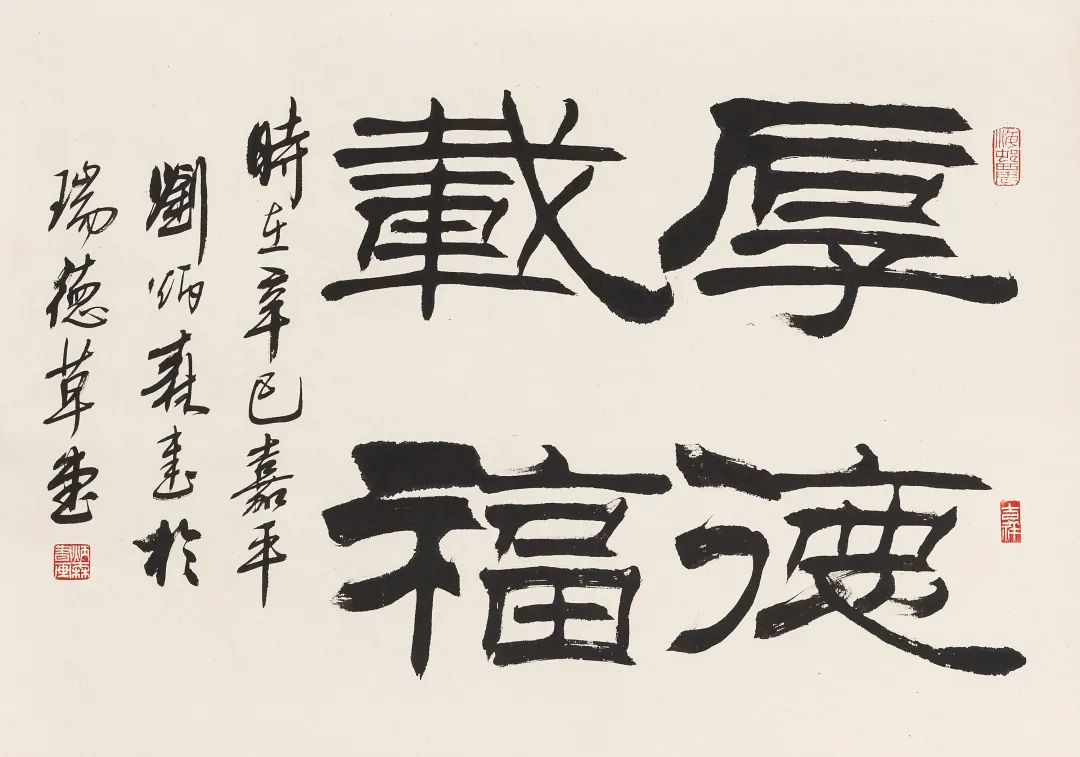 厚德
載福
時在辛巳嘉平
劉炳森書於
瑞德草堂
吉祥